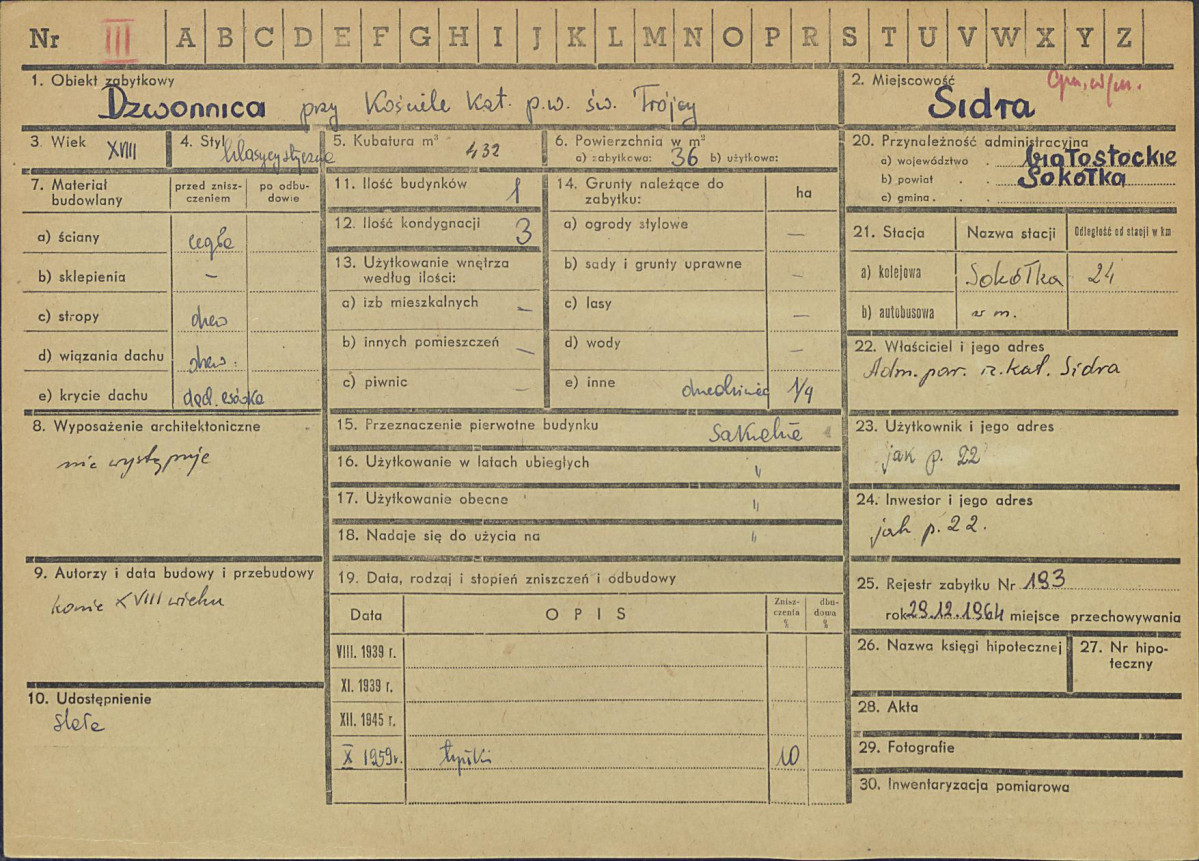 Nr III A B C D E F G H I J K L M N O P R S T U V W X Y Z
1. Obiekt zabytkowy
Dzwonnica przy Kościele Kat. p.w. św. Trójcy
2. Miejscowość
Sidra
3. Wiek XVIII
4. Styl klasycystyczna
5. Kubatura m³ 432
6. Powierzchnia w m²
a) zabytkowa: 36 b) użytkowa:
7. Materiał budowlany
przed zniszczeniem
po odbudowie
a) ściany cegła
b) sklepienia –
c) stropy drew
d) wiązania dachu drew.
e) krycie dachu dach. esówka
8. Wyposażenie architektoniczne
nie występuje
9. Autorzy i data budowy i przebudowy
konie XVIII wieku
10. Udostępnienie
stałe
11. Ilość budynków 1
12. Ilość kondygnacji 3
13. Użytkowanie wnętrza
według ilości:
a) izb mieszkalnych –
b) innych pomieszczeń –
c) piwnic –
14. Grunty należące do
zabytku:
ha
a) ogrody stylowe –
b) sady i grunty uprawne –
c) lasy –
d) wody –
e) inne dziedziniec
15. Przeznaczenie pierwotne budynku sakralne
16. Użytkowanie w latach ubiegłych "
17. Użytkowanie obecne "
18. Nadaje się do użycia na "
19. Data, rodzaj i stopień zniszczeń i odbudowy
Data
OPIS
Zniszczenia %
dbudowa %
VIII. 1939 r.
XI. 1939 r.
XII. 1945 r.
X 1959 r. tynki 10
20. Przynależność administracyjna
a) województwo białostockie
b) powiat Sokółka
c) gmina
21. Stacja
Nazwa stacji
Odległość od stacji w km
a) kolejowa Sokółka 24
b) autobusowa w m.
22. Właściciel i jego adres
Adm. par. rz. kat. Sidra
23. Użytkownik i jego adres
jak p. 22
24. Inwestor i jego adres
jak p. 22.
25. Rejestr zabytku Nr 193
rok 29.12.1964 miejsce przechowywania
26. Nazwa księgi hipotecznej
27. Nr hipoteczny
28. Akta
29. Fotografie
30. Inwentaryzacja pomiarowa